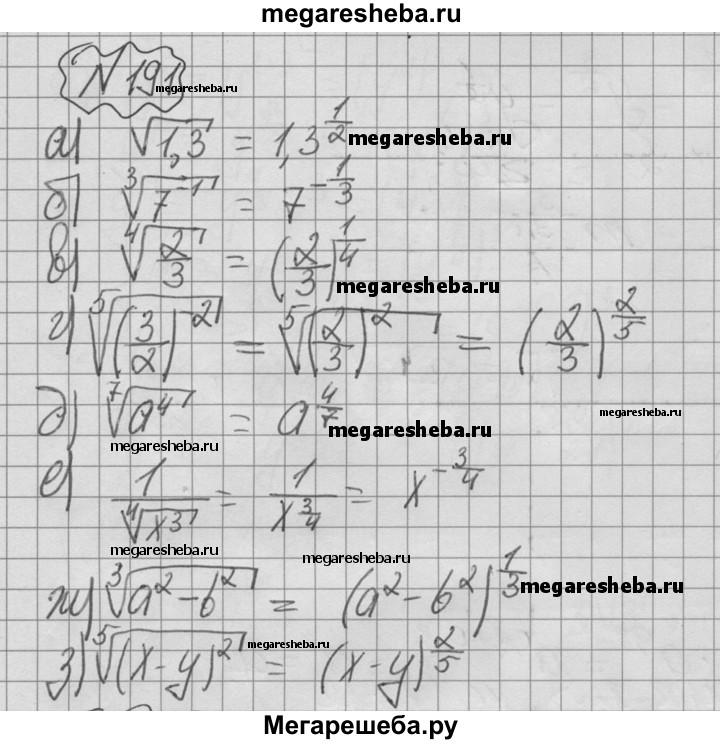 megaresheba.ru
N 191 megaresheba.ru
а) √1,3 = 1,3^(1/2) megaresheba.ru
б) ∛(7^(-1)) = 7^(-1/3)
в) ∜(2/3) = (2/3)^(1/4)
megaresheba.ru
г) ⁵√((3/2)^(-2)) = ⁵√((2/3)^2) = (2/3)^(2/5)
megaresheba.ru
д) ⁷√(a^4) = a^(4/7) megaresheba.ru
megaresheba.ru
е) 1/∜(x^3) = 1/x^(3/4) = x^(-3/4)
megaresheba.ru megaresheba.ru
ж) ∛(a^2-b^2) = (a^2-b^2)^(1/3) megaresheba.ru
з) ⁵√((x-y)^2) megaresheba.ru = (x-y)^(2/5)
Мегарешеба.ру